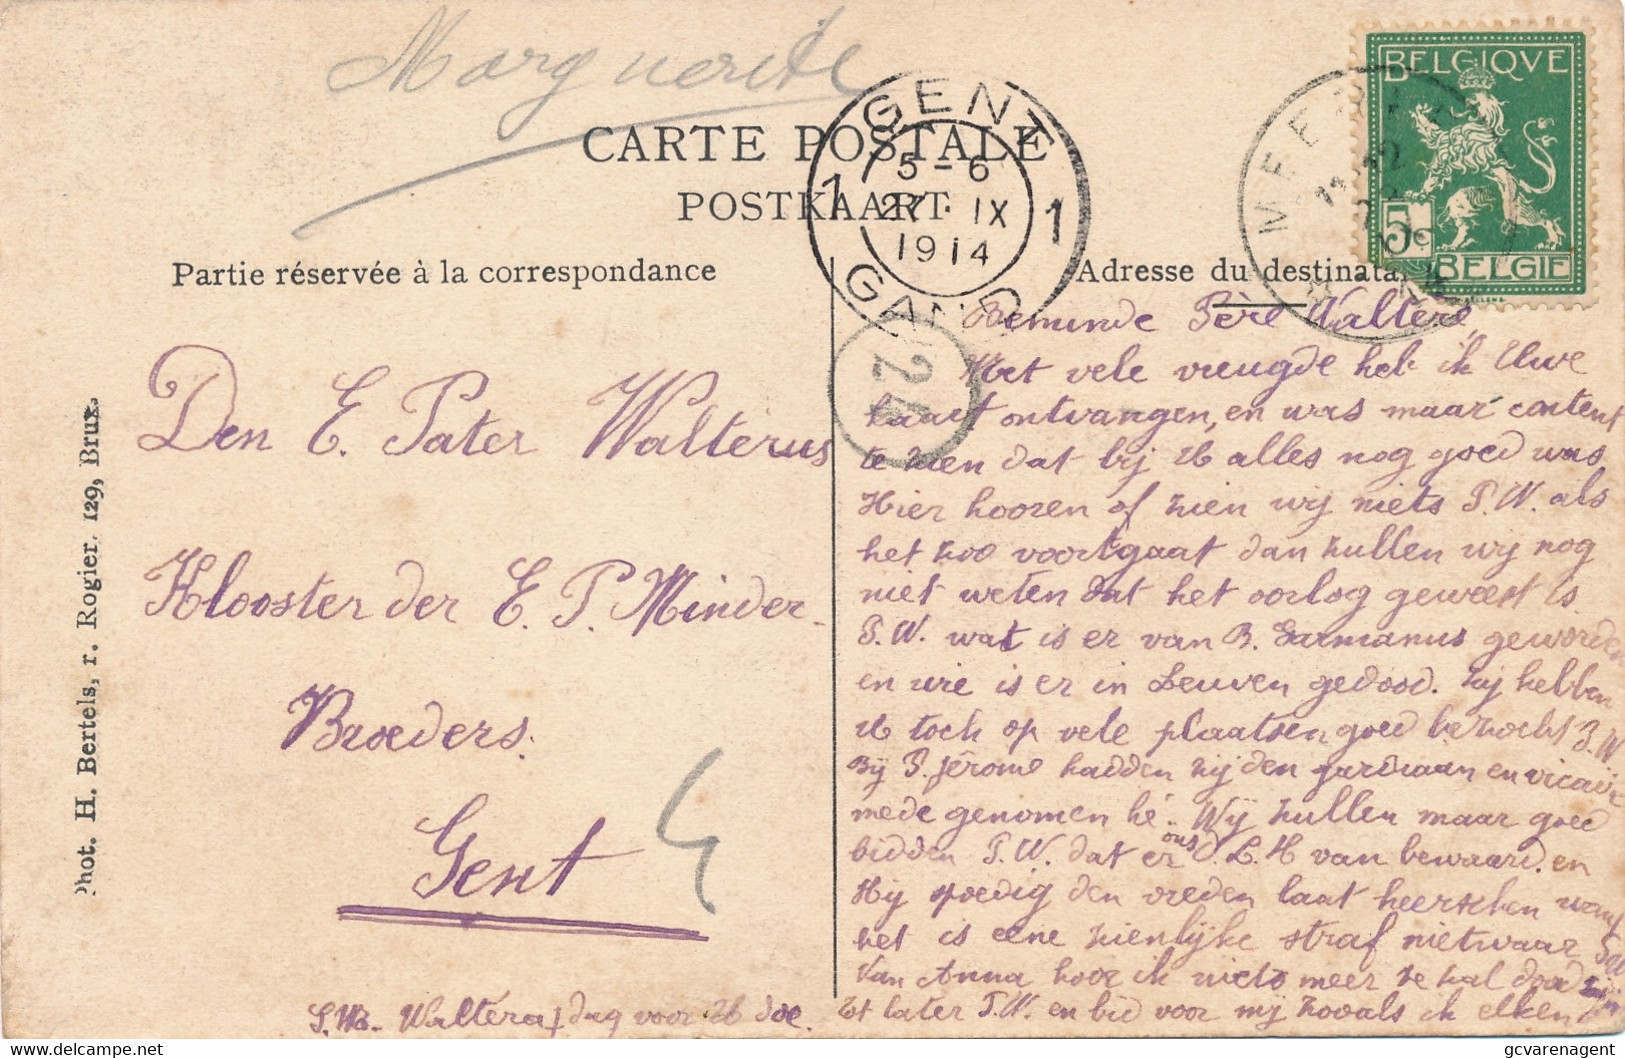 Marguerite
CARTE POSTALE
POSTKAART
Partie réservée à la correspondance
Adresse du destinata
GENT
5-6
1 27 · IX 1
1914
GAND
24
BELGIQVE
5c
BELGIE
MEER
Phot. H. Bertels, r. Rogier, 129, Brux.
Den E. Pater Walterus
Klooster der E. P. Minder-
Broeders.
Gent
Beminde Père Waltere,
Met vele vreugde heb ik Uwe
kaart ontvangen, en was maar content
te zien dat bij U alles nog goed was
Hier hooren of zien wij niets P. W. als
het zoo voortgaat dan zullen wij nog
niet weten dat het oorlog geweest is
P. W. wat is er van B. Germanus geworden
en wie is er in Leuven gedood. Zij hebben
U toch op vele plaatsen goed bezocht P. W.
Bij P. Jérome hadden zij den gardiaan en vicair
mede genomen hé. Wij zullen maar goed
bidden P. W. dat er ons d. L. H van bewaard. en
Hij spoedig den vreden laat heerschen want
het is eene zienlijke straf nietwaar
Van Anna hoor ik niets meer ze zal dood zijn
Tot later P. W. en bid voor mij zooals ik elken
dag voor U doe.